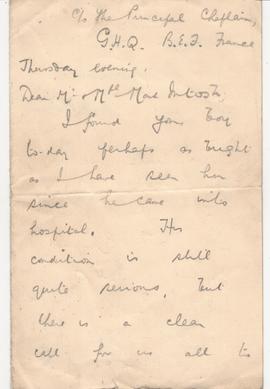 c/o The Principal Chaplain,
G.H.Q. B.E.F. France
Thursday evening.
Dear Mr & Mrs MacIntosh,
I found your boy
to-day perhaps as bright
as I have seen him
since he came into
hospital. His
condition is still
quite serious, but
there is a clear
call for us all to